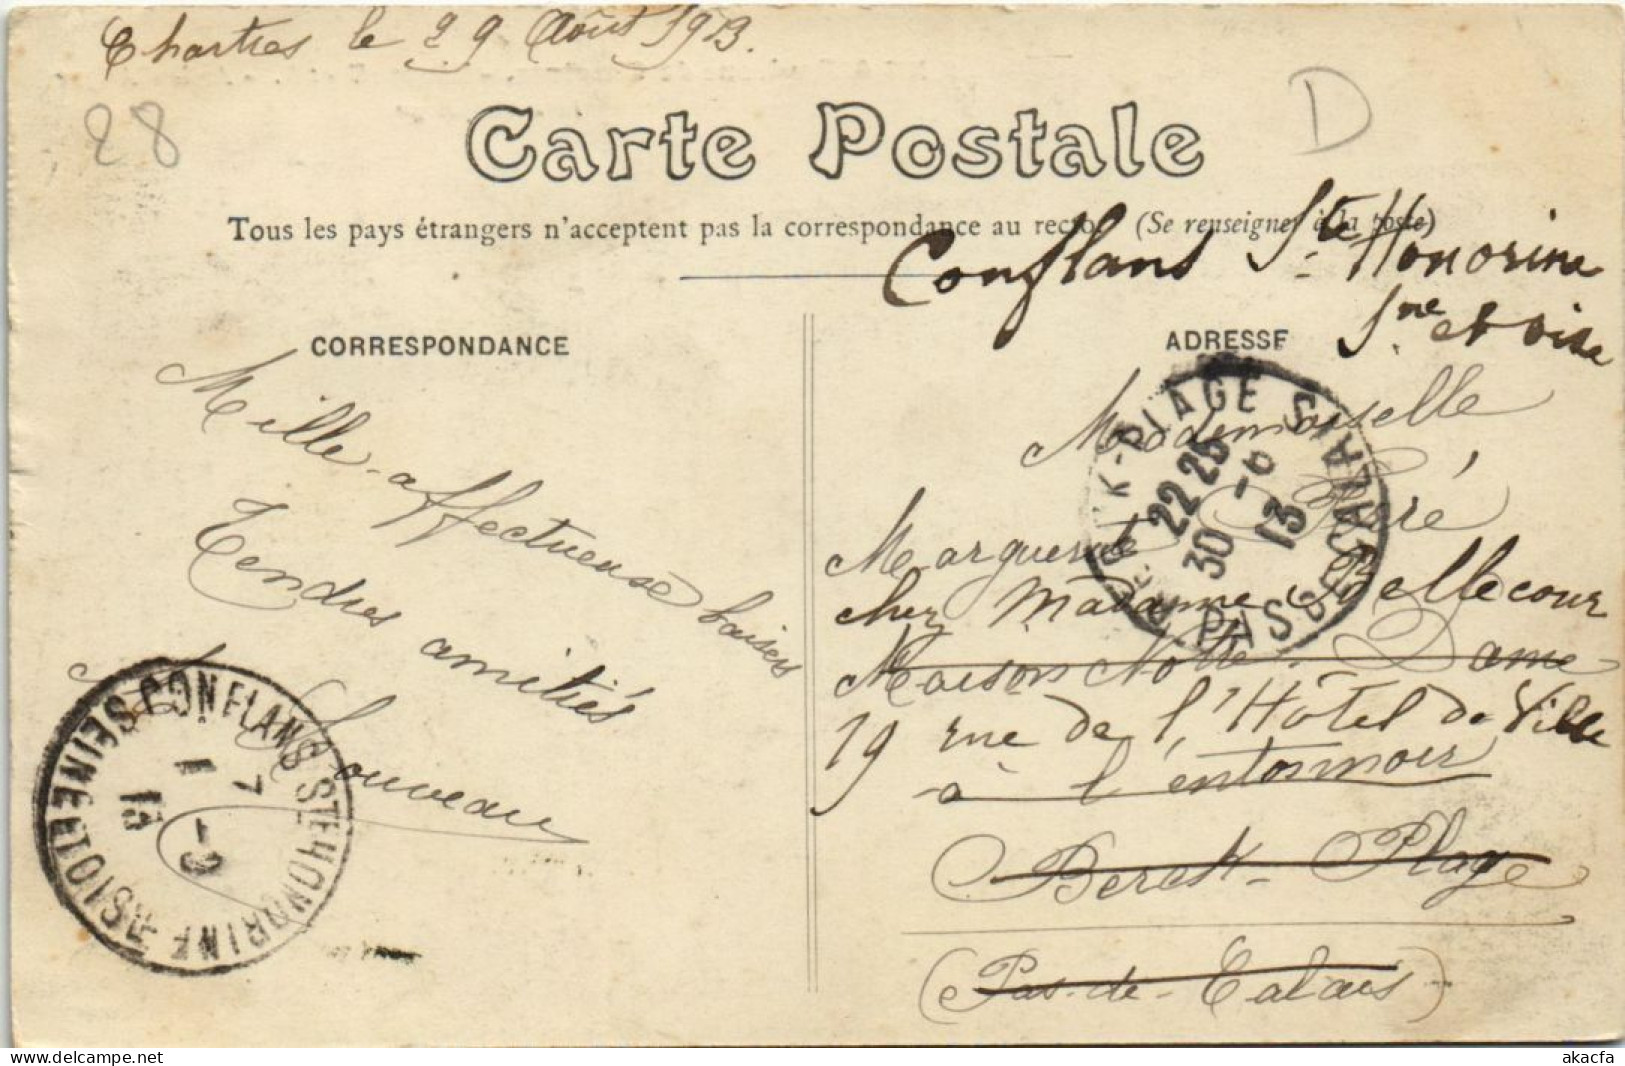 Chartres le 29 Août 1913.
28
D
Carte Postale
Tous les pays étrangers n'acceptent pas la correspondance au recto. (Se renseigner à la poste)
Conflans Ste Honorine
Sne et oise
CORRESPONDANCE
Mille affectueuse baisers
Tendres amitiés
Louveau
CONFLANS STE HONORINE
SEINE ET OISE
7
1 -9
13
ADRESSE
Mademoiselle
Marguerite
chez Madame Bellecour
Maison Notre-Dame
19 rue de l'Hôtel de Ville
à l'entonnoir
Berck-Plage
(Pas-de-Calais)
K-PLAGE
PAS DE CALAIS
22 25
30 -6
13
www.delcampe.net
akacfa